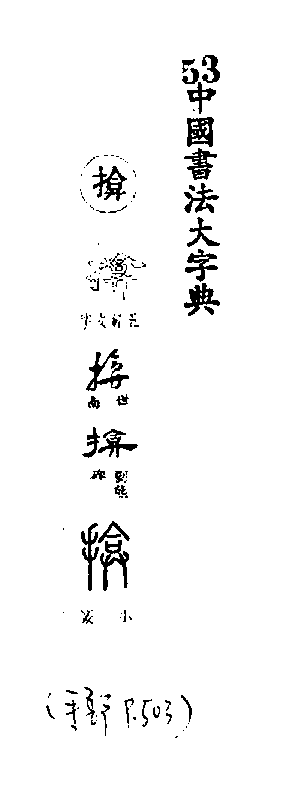 53中國書法大字典
揜
揜
世南
揜
劉熊碑
揜
小篆
(手部 P.503)